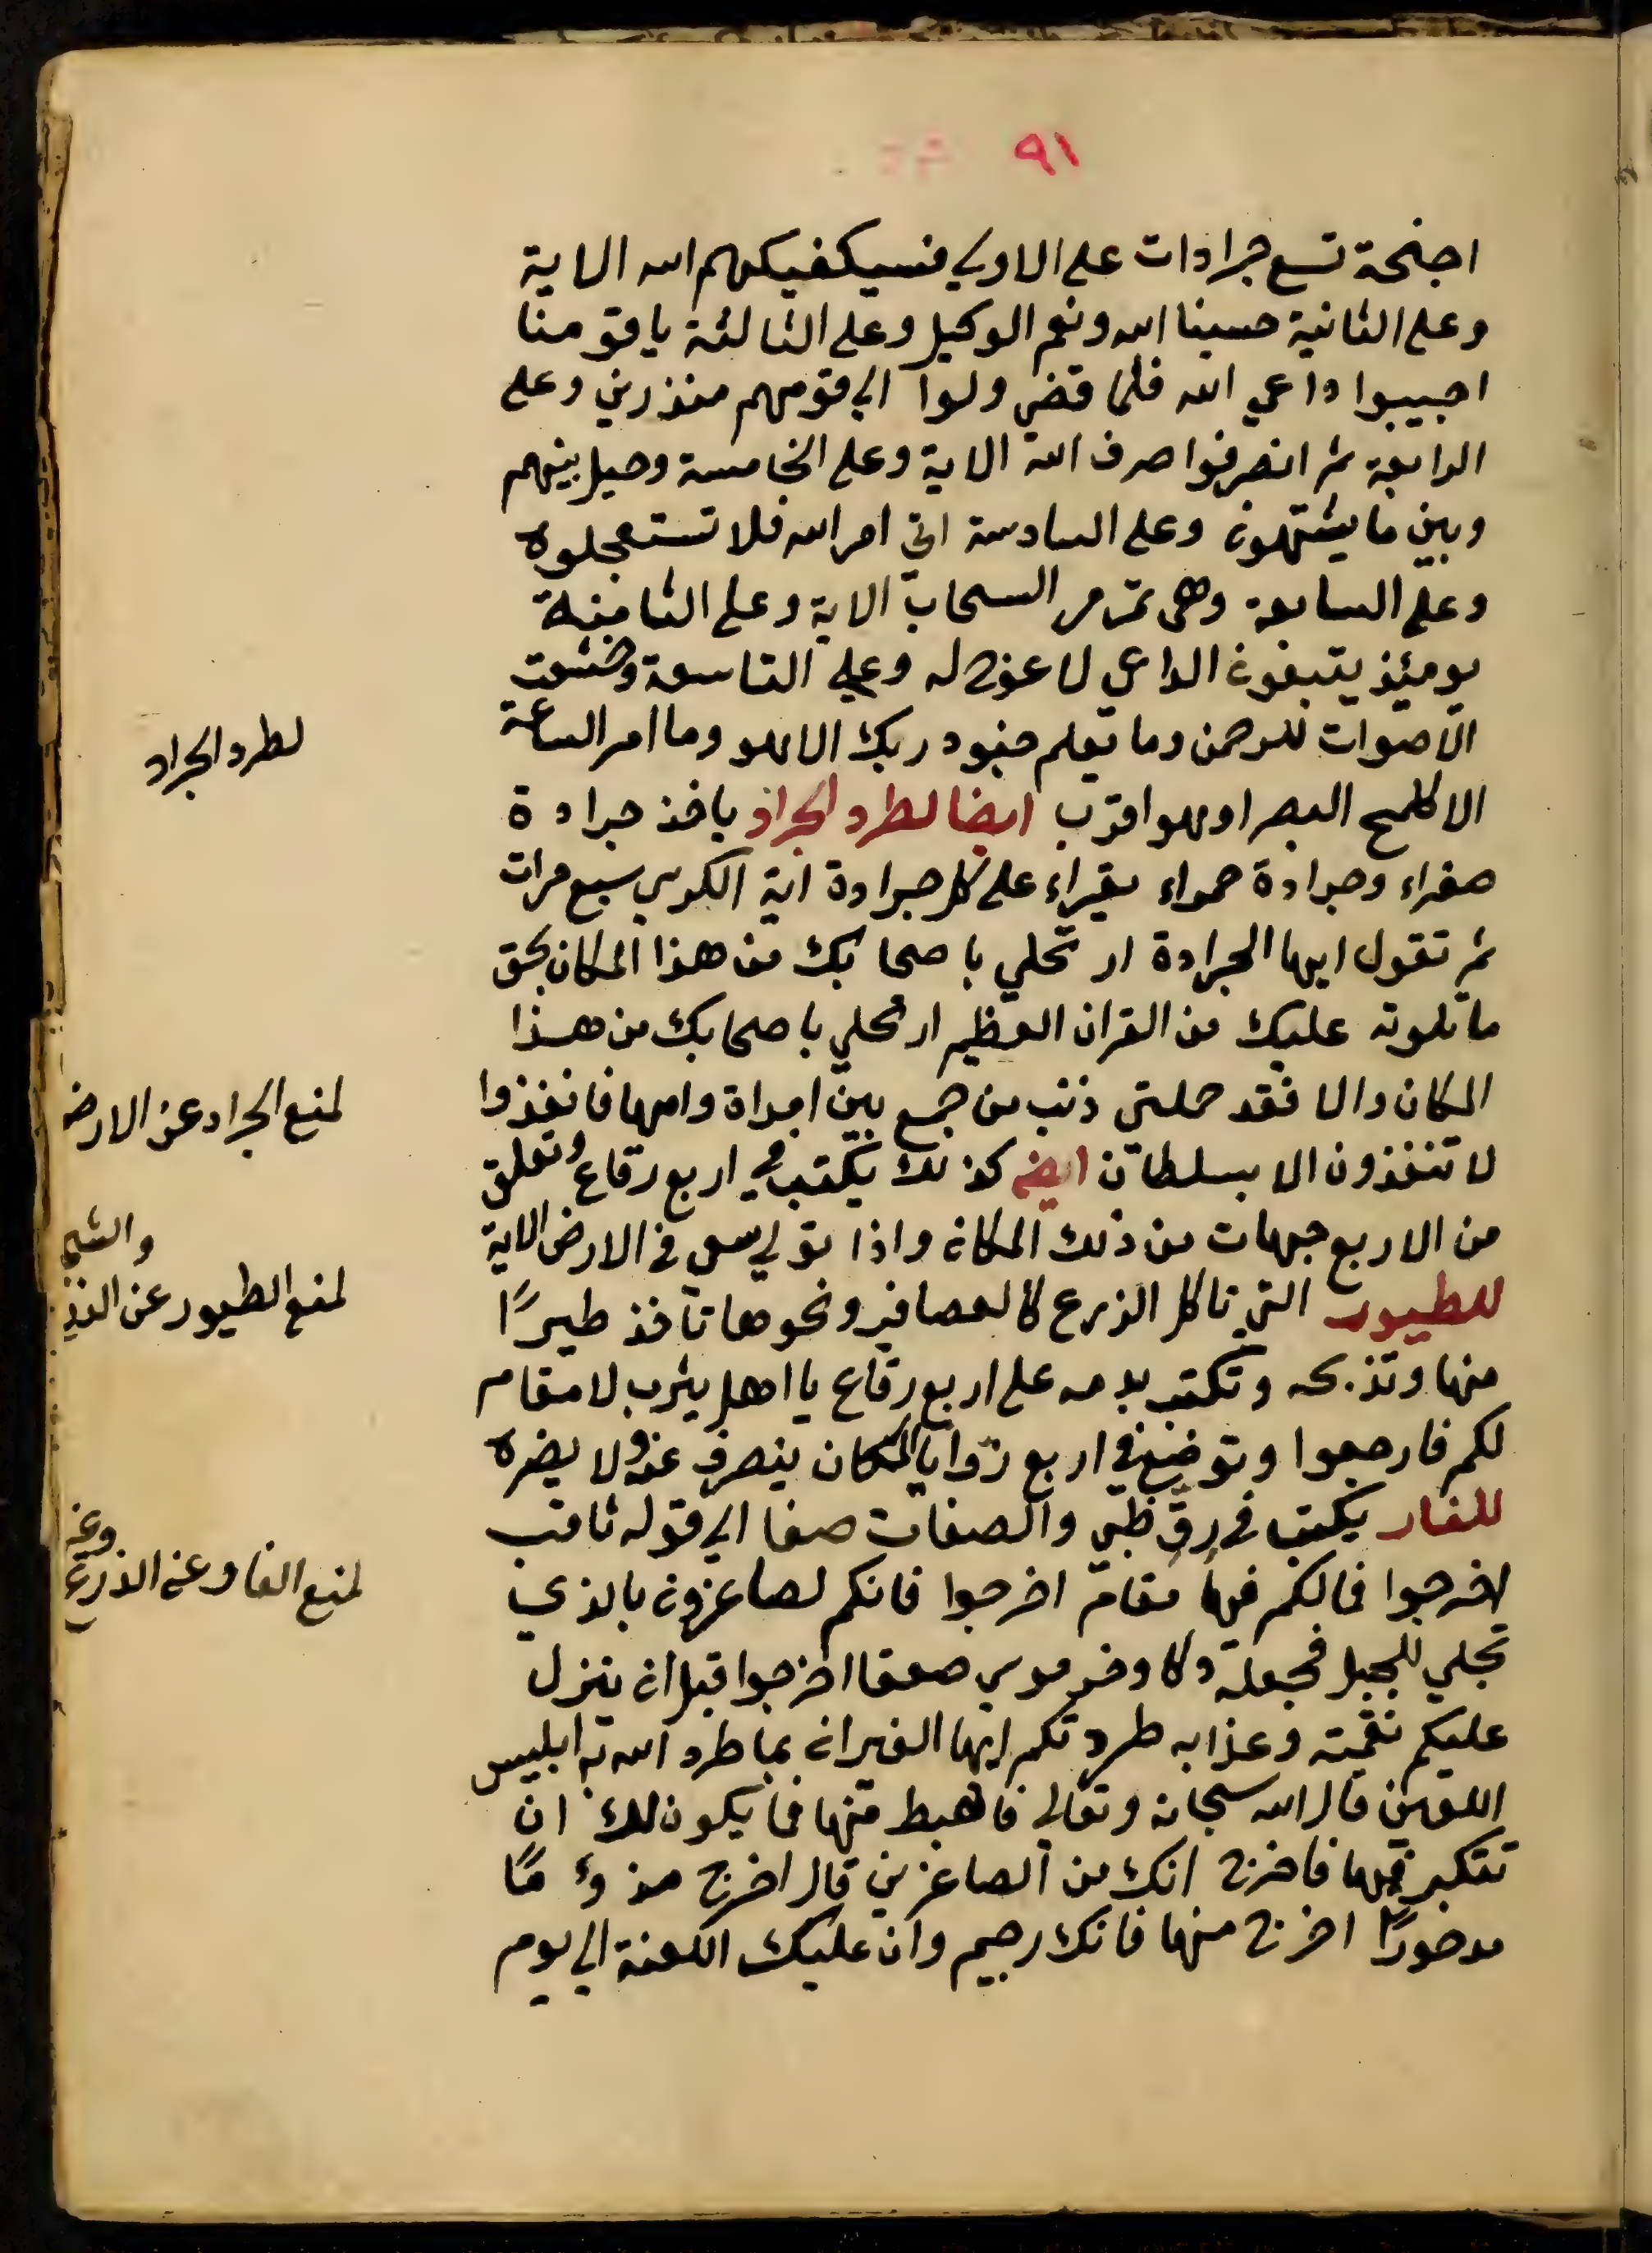 ٩١
اجنحة تسع جرادات على الاولى فسيكفيكهم الله الاية
وعلى الثانية حسبنا الله ونعم الوكيل وعلى الثالثة ياقومنا
اجيبوا داعي الله فلما قضي ولوا الى قومهم منذرين وعلى
الرابعة ثم انصرفوا صرف الله الاية وعلى الخامسة وحيل بينهم
وبين ما يشتهون وعلى السادسة اتى امر الله فلا تستعجلوه
وعلى السابعة وهى تمر مر السحاب الاية وعلى الثامنة
يومئذ يتبعون الداعي لا عوج له وعلى التاسعة وخشعت
الاصوات للرحمن وما يعلم جنود ربك الا هو وما امر الساعة
لطرد الجراد
الا كلمح البصر او هو اقرب ايضا لطرد الجراد ياخذ جرادة
صفراء وجرادة حمراء يقراء على كل جرادة اية الكرسي سبع مرات
ثم تقول ايها الجرادة ارتحلي باصحابك من هذا المكان بحق
ما تلوته عليك من القران العظيم ارتحلي باصحابك من هذا
المكان والا فقد حملتى ذنب من جمع بين امراة وامها فانفذوا
لمنع الجراد عن الارض
لا تنفذون الا بسلطان ايضا كذلك يكتب في اربع رقاع وتعلق
من الاربع جهات من ذلك المكان واذا تولى سعى في الارض الاية
للطيور التي تاكل الزرع كالعصافير ونحوها تاخذ طيرًا
لمنع الطيور عن الزرع
والشجر
منها وتذبحه وتكتب بدمه على اربع رقاع يا اهل يثرب لا مقام
لكم فارجعوا وتوضع في اربع زوايا المكان ينصرف عنه ولا يضره
للفار يكتب في رق ظبي والصفات صفا الى قوله ثاقب
لمنع الفار عن الزرع
وغيره
اخرجوا فما لكم فيها مقام اخرجوا فانكم لصاغرون بالذي
تجلى للجبل فجعله دكا وخر موسى صعقا اخرجوا قبل ان ينزل
عليكم نقمته وعذابه طردتكم ايها الفيران بما طرد الله به ابليس
اللعين قال الله سبحانه وتعالى فاهبط منها فما يكون لك ان
تتكبر فيها فاخرج انك من الصاغرين قال اخرج مذوءمًا
مدحورًا اخرج منها فانك رجيم وان عليك اللعنة الى يوم